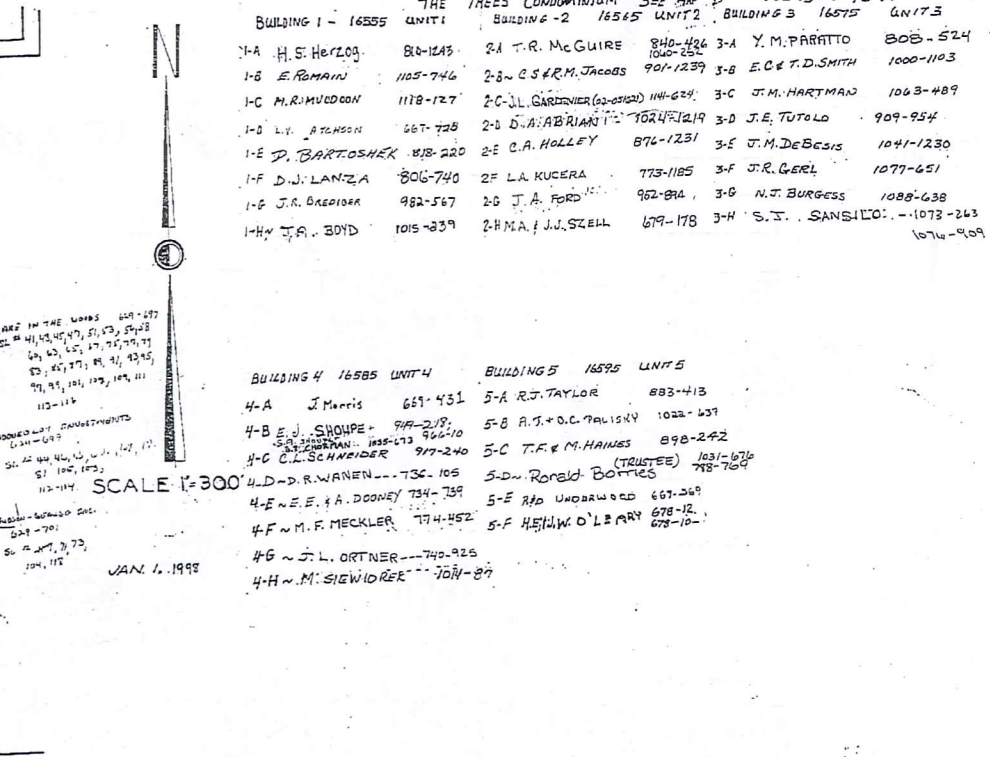 THE TREES CONDOMINIUM SEE
BUILDING 1 - 16555 UNIT 1
1-A H.S. Herzog. 810-1243
1-B E. ROMAIN 1105-746
1-C M.R. MULDOON 1118-127
1-D L.V. ATCHSON 667-725
1-E D. BARTOSHEK 818-220
1-F D.J. LANZA 806-740
1-G J.R. BREDIGER 982-567
1-H~ J.A. BOYD 1015-239
BUILDING - 2 16565 UNIT 2
2-A T.R. McGUIRE 840-426
1060-252
2-B~ C S & R.M. JACOBS 901-1239
2-C-J.L. GARDENIER (02-051521) 1141-624
2-D D.A. ABRIANI - 1024-1219
2-E C.A. HOLLEY 876-1231
2F L.A. KUCERA 773-1185
2-G J.A. FORD 952-894
2-H M.A. & J.J. SZELL 679-178
BUILDING 3 16575 UNIT 3
3-A Y.M. PARATTO 808-524
3-B E.C. & T.D. SMITH 1000-1103
3-C J.M. HARTMAN 1063-489
3-D J.E. TUTOLO 909-954
3-E J.M. DeBESIS 1041-1230
3-F J.R. GERL 1077-651
3-G N.J. BURGESS 1088-638
3-H S.J. SANSILO - 1073-263
1076-909
N
ARE IN THE WOODS 629-697
SL # 41,43,45,47, 51,53, 56,58
63, 65, 67, 75,77,79
83, 85, 87, 89, 91, 93,95,
97, 99, 101, 103, 109, 111
113-116
INVESTMENTS
SL # 44, 46,
51 105, 103,
112-114
SCALE 1"=300'
INC.
629-701
71, 73,
104, 115
JAN. 1. 1998
BUILDING 4 16585 UNIT 4
4-A J. Morris 669-431
4-B E.J. SHOUPE + 919-218;
1035-673 966-10
4-C C.L. SCHNEIDER 917-240
4-D~D.R. WANEN---736-105
4-E~E.E. & A. DOONEY 734-739
4-F~M.F. MECKLER 774-452
4-G~J.L. ORTNER---740-925
4-H~M. SIEWIOREK --- 1014-87
BUILDING 5 16595 UNIT 5
5-A R.J. TAYLOR 883-413
5-B A.J. + O.C. PALISKY 1022-637
5-C T.F. & M. HAINES 898-242
5-D~ Ronald Borries (TRUSTEE) 1031-676
788-769
5-E R & D UNDERWOOD 669-369
5-F H.E. & W. O'LEARY 678-12
678-10